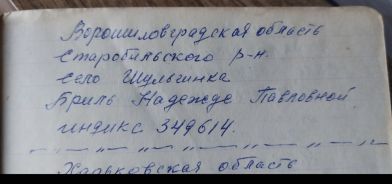 Ворошиловградская область
Старобильского р-н.
село Шульгинка
Бриль Надежде Павловной
индекс 349614.
—〃—〃—〃—〃—〃—〃—
Харьковская область